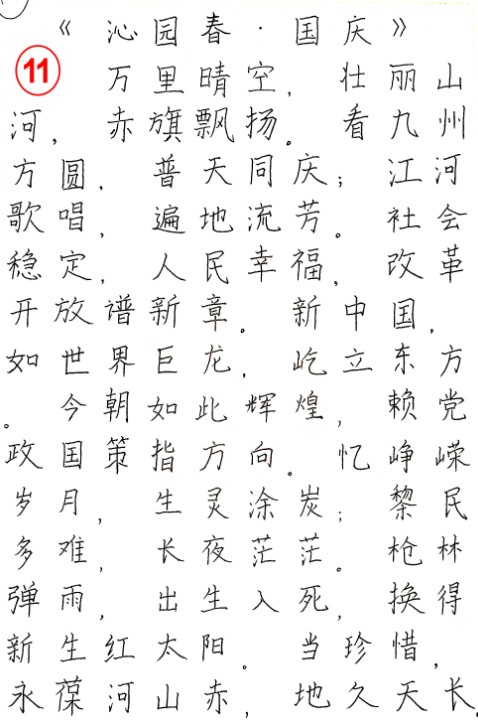 《沁园春·国庆》
11
万里晴空，壮丽山
河，赤旗飘扬。看九州
方圆，普天同庆；江河
歌唱，遍地流芳。社会
稳定，人民幸福，改革
开放谱新章。新中国，
如世界巨龙，屹立东方
。今朝如此辉煌，赖党
政国策指方向。忆峥嵘
岁月，生灵涂炭；黎民
多难，长夜茫茫。枪林
弹雨，出生入死，换得
新生红太阳。当珍惜，
永葆河山赤，地久天长.